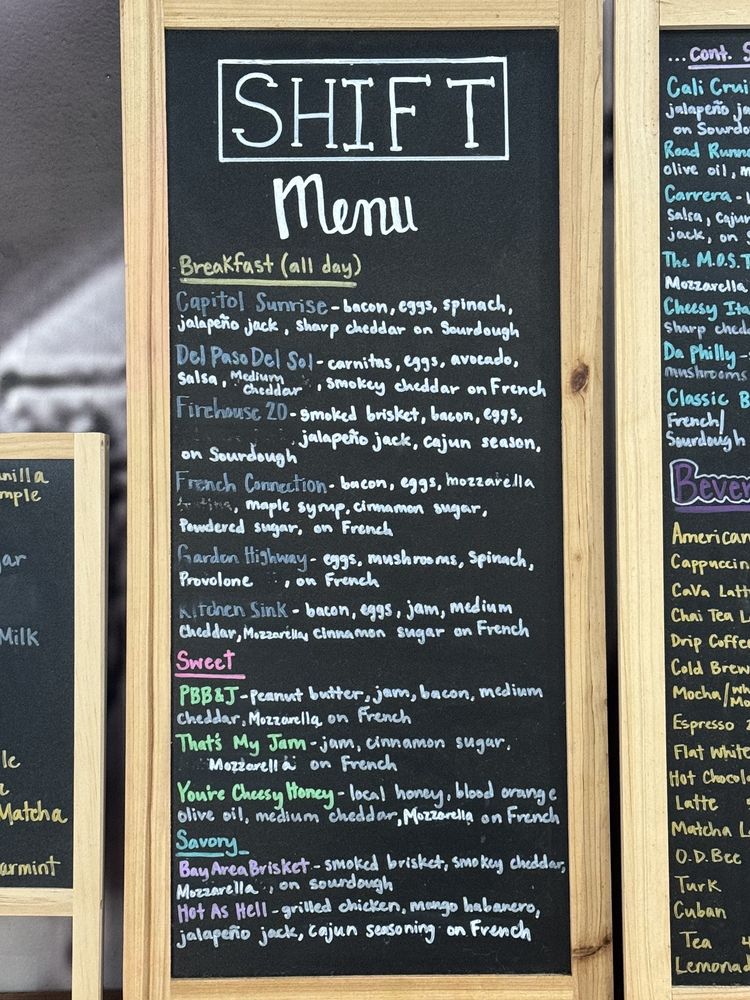 SHIFT
Menu
Breakfast (all day)
Capitol Sunrise - bacon, eggs, spinach,
jalapeño jack, sharp cheddar on Sourdough
Del Paso Del Sol - carnitas, eggs, avocado,
salsa, Medium cheddar, smokey cheddar on French
Firehouse 20 - smoked brisket, bacon, eggs,
jalapeño jack, cajun season,
on Sourdough
French Connection - bacon, eggs, mozzarella
maple syrup, cinnamon sugar,
Powdered sugar, on French
Garden Highway - eggs, mushrooms, Spinach,
Provolone , on French
Kitchen Sink - bacon, eggs, jam, medium
Cheddar, Mozzarella, cinnamon sugar on French
Sweet
PBB&J - peanut butter, jam, bacon, medium
cheddar, Mozzarella, on French
That's My Jam - jam, cinnamon sugar,
Mozzarella on French
You're Cheesy Honey - local honey, blood orange
olive oil, medium cheddar, Mozzarella on French
Savory
Bay Area Brisket - smoked brisket, smokey cheddar,
Mozzarella , on sourdough
Hot As Hell - grilled chicken, mango habanero,
jalapeño jack, cajun seasoning on French
...cont.
Cali
jalapeño
on
Road
olive oil,
Carrera -
Salsa,
jack, on
The M.O.S.T
Mozzarella
Cheesy
sharp
Da Philly -
mushrooms
Classic B
French/
Sourdough
American
Cappuccin
CaVa Latt
Chai Tea L
Drip Coffee
Cold Brew
Mocha/
Espresso
Flat White
Hot Chocol
Latte
Matcha L
O.D.Bee
Turk
Cuban
Tea 4
Lemonad
Milk
Matcha